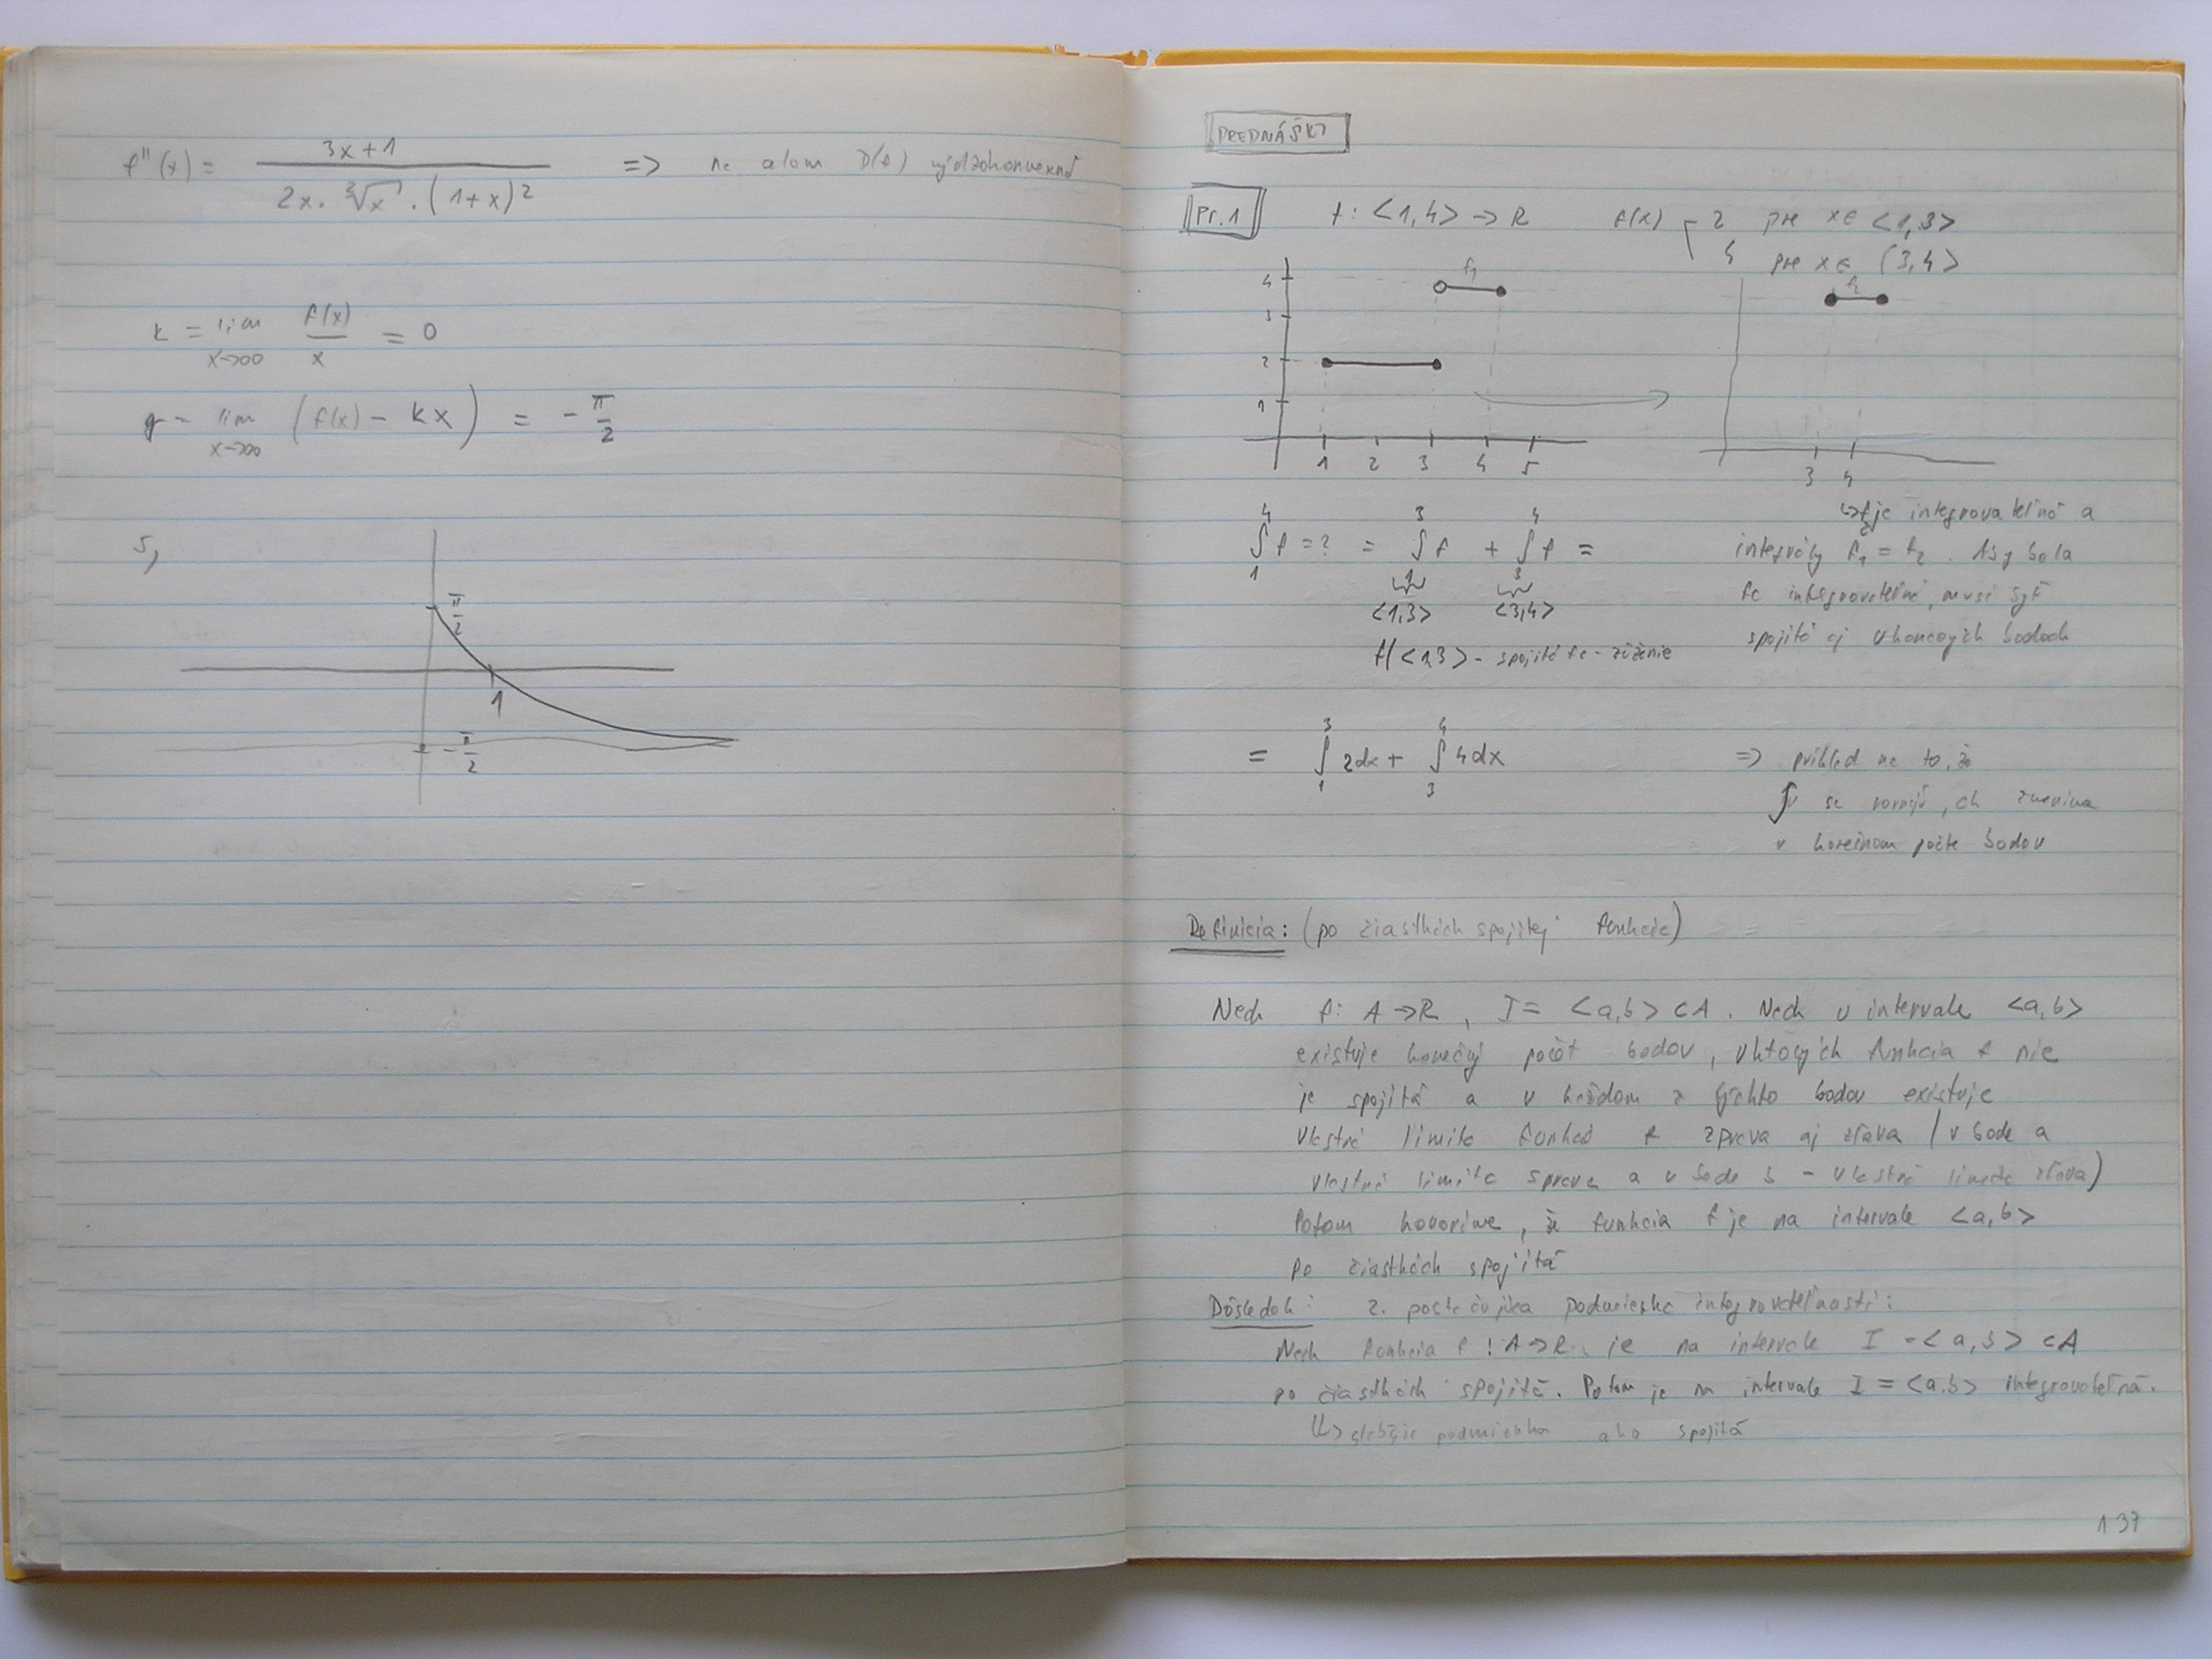 f''(x) = (3x+1) / (2x . ∛x . (1+x)²) => na D(f)
k = lim x→∞ f(x)/x = 0
q = lim x→∞ (f(x) - kx) = -π/2
5,
π/2
1
-π/2
PREDNÁŠKY
Pr.1 f: <1,4> → R f(x) 2 pre x∈ <1,3>
4 pre x∈ (3,4>
4 f1 f2
3
2
1
1 2 3 4 5 3 4
↳ f je integrovateľná a
4∫1 f = ? = 3∫1 f + 4∫3 f = integrály f1 = f2. Aby bola
<1,3> <3,4> fc integrovateľná, musí byť
f/<1,3> - spojitá fc - zúženie spojitá aj v koncových bodoch
= 3∫1 2dx + 4∫3 4dx => na to, že
∫ sa
v konečnom počte bodov
Definícia: (po čiastkách spojitej funkcie)
Nech f: A → R, I = <a,b> ⊂ A. Nech v intervale <a,b>
existuje konečný počet bodov, v ktorých funkcia f nie
je spojitá a v každom z týchto bodov existuje
vlastná limita funkcie f zprava aj zľava (v bode a
vlastná limita sprava a v bode b - vlastná limita zľava)
Potom hovoríme, že funkcia f je na intervale <a,b>
po čiastkách spojitá
Dôsledok: 2. postačujúca podmienka integrovateľnosti:
Nech funkcia f: A → R, je na intervale I = <a,b> ⊂ A
po čiastkách spojitá. Potom je na intervale I = <a,b> integrovateľná.
↳ slabšia podmienka ako spojitá
137